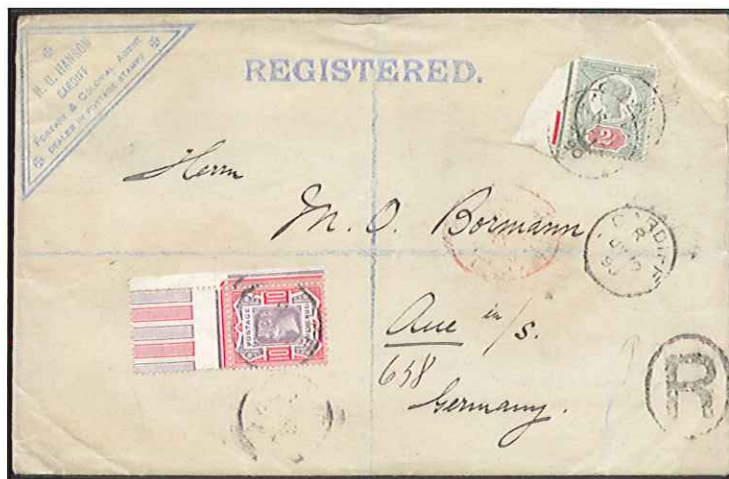 H. C. HANSON
CARDIFF
FOREIGN & COLONIAL AGENT
DEALER IN POSTAGE STAMPS
REGISTERED.
2
Herrn
M. O. Bormann
CARDIFF
R
90
10 10
POSTAGE
Aue in/S.
658
Germany.
R